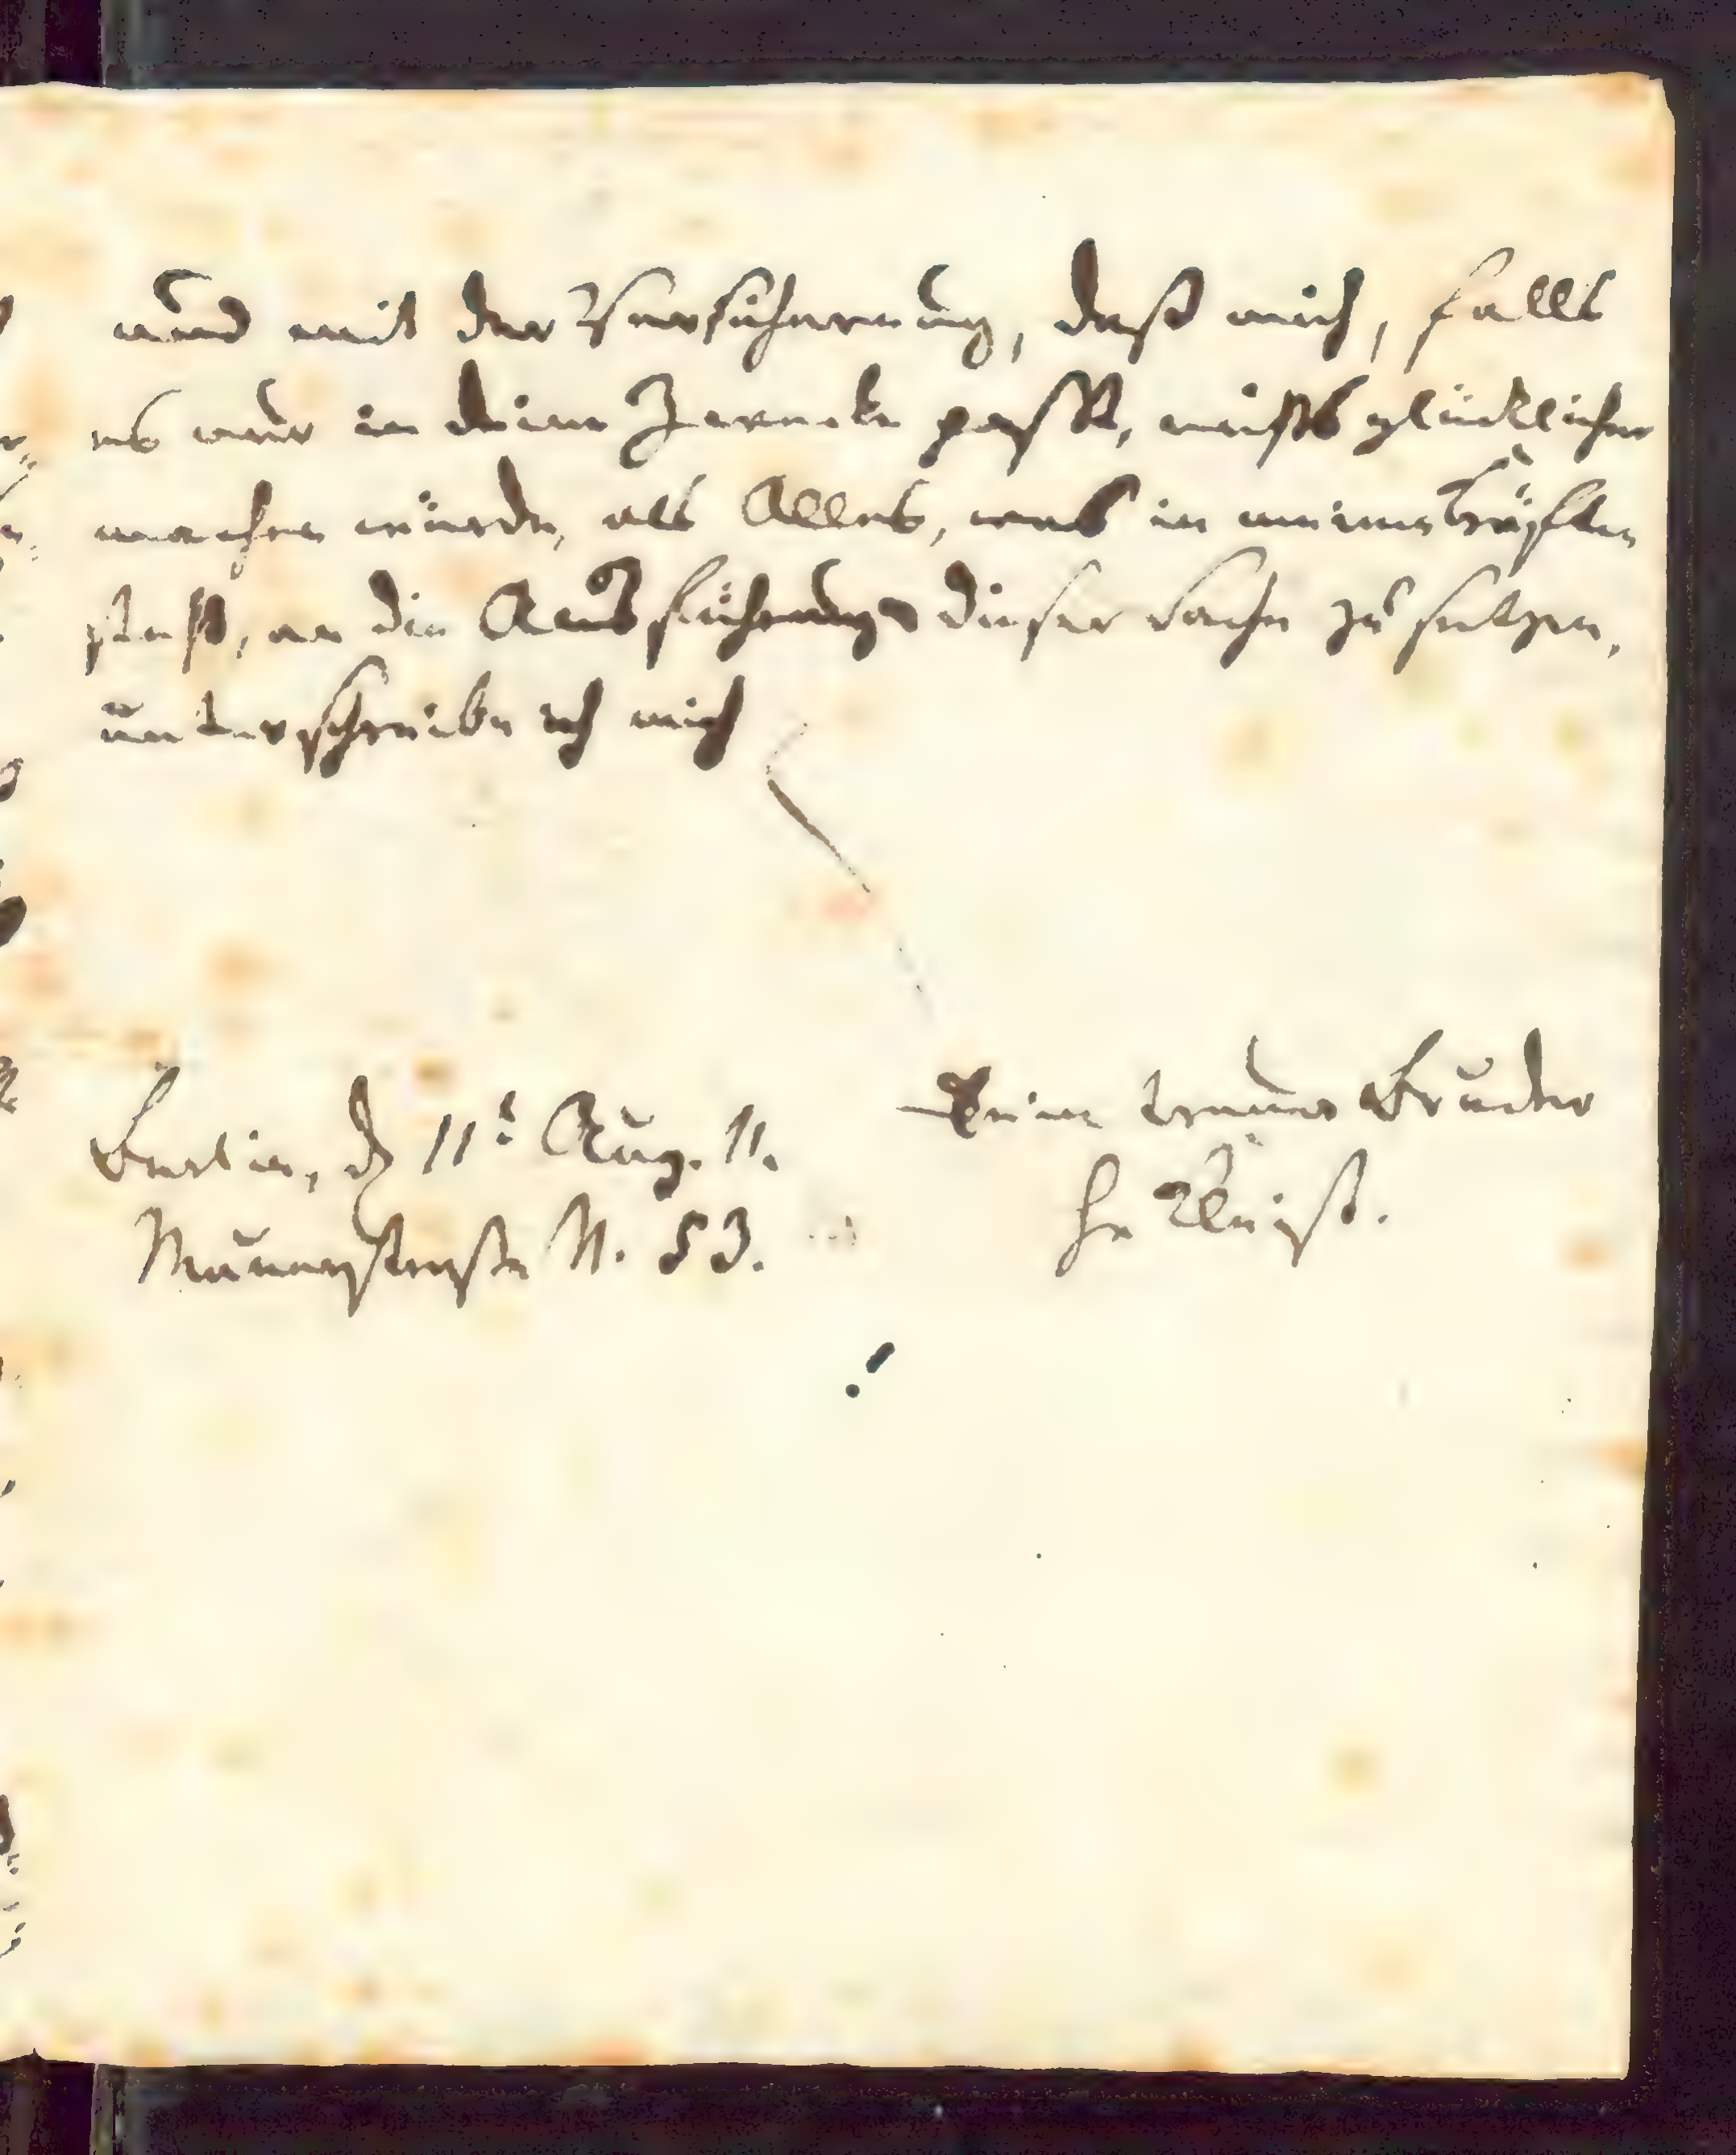 und mit der Versicherung, daß mich, falls
es nur in deine Zwecke paßt, nichts glücklicher
machen würde, als Alles, was in meinen Kräften
steht, an die Ausführung dieser Sache zu setzen,
unterschreibe ich mich
Dein treuer Bruder
Berlin, d 11t Aug. 11.
H v Kleist.
Mauerstraße N. 53.